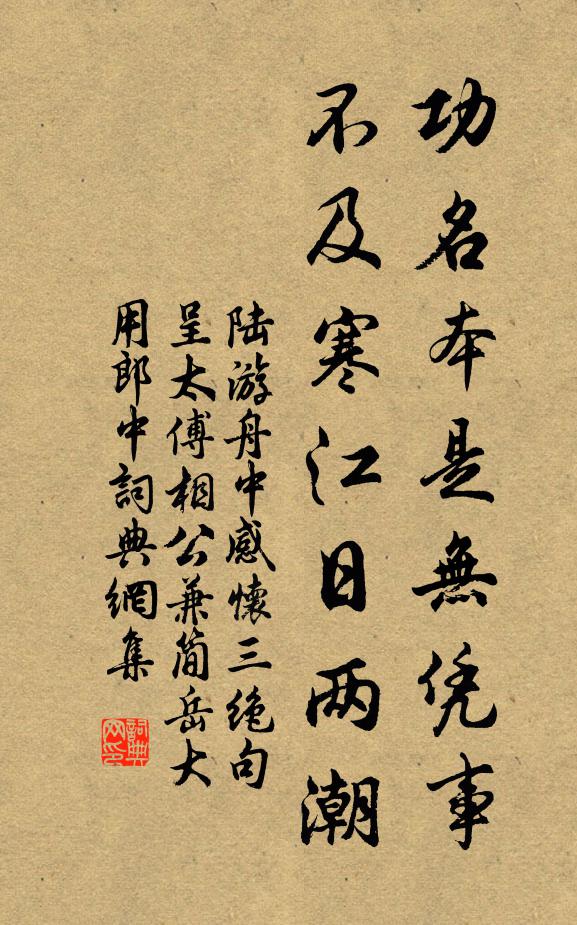 功名本是無凭事
不及寒江日两潮
陆游舟中感懷三绝句
呈太傅相公兼简岳大
用郎中詞典網集